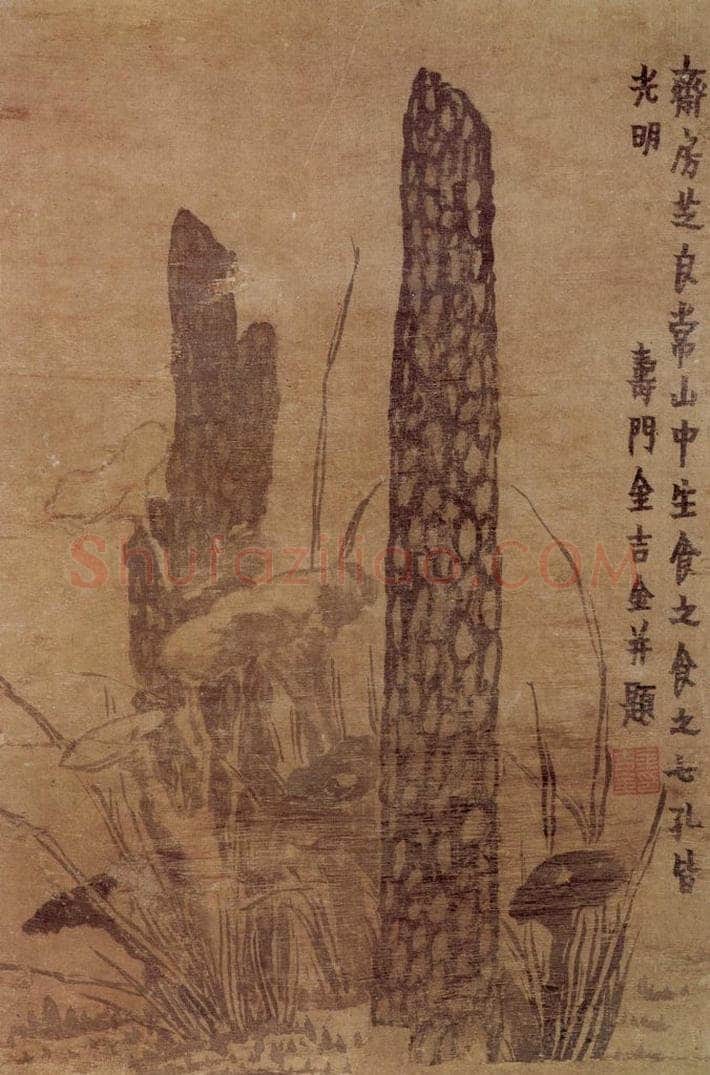 齋房芝良常山中生食之食之七孔皆
光明
壽門金吉金并題
shufaziliao.COM